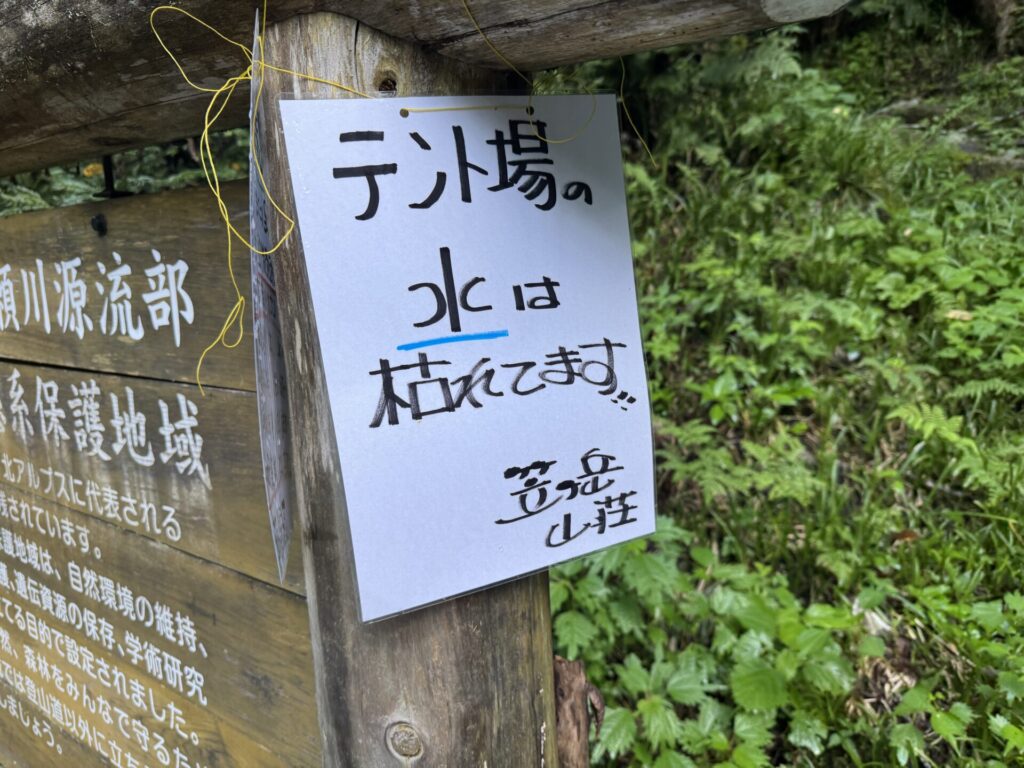 瀬川源流部
系保護地域
北アルプスに代表される
残されています。
護地域は、自然環境の維持、
護、遺伝資源の保存、学術研究
てる目的で設定されました。
然、森林をみんなで守るため
では登山道以外に立ち
しましょう。
テント場の
水は
枯れてます!!
笠ヶ岳
山荘